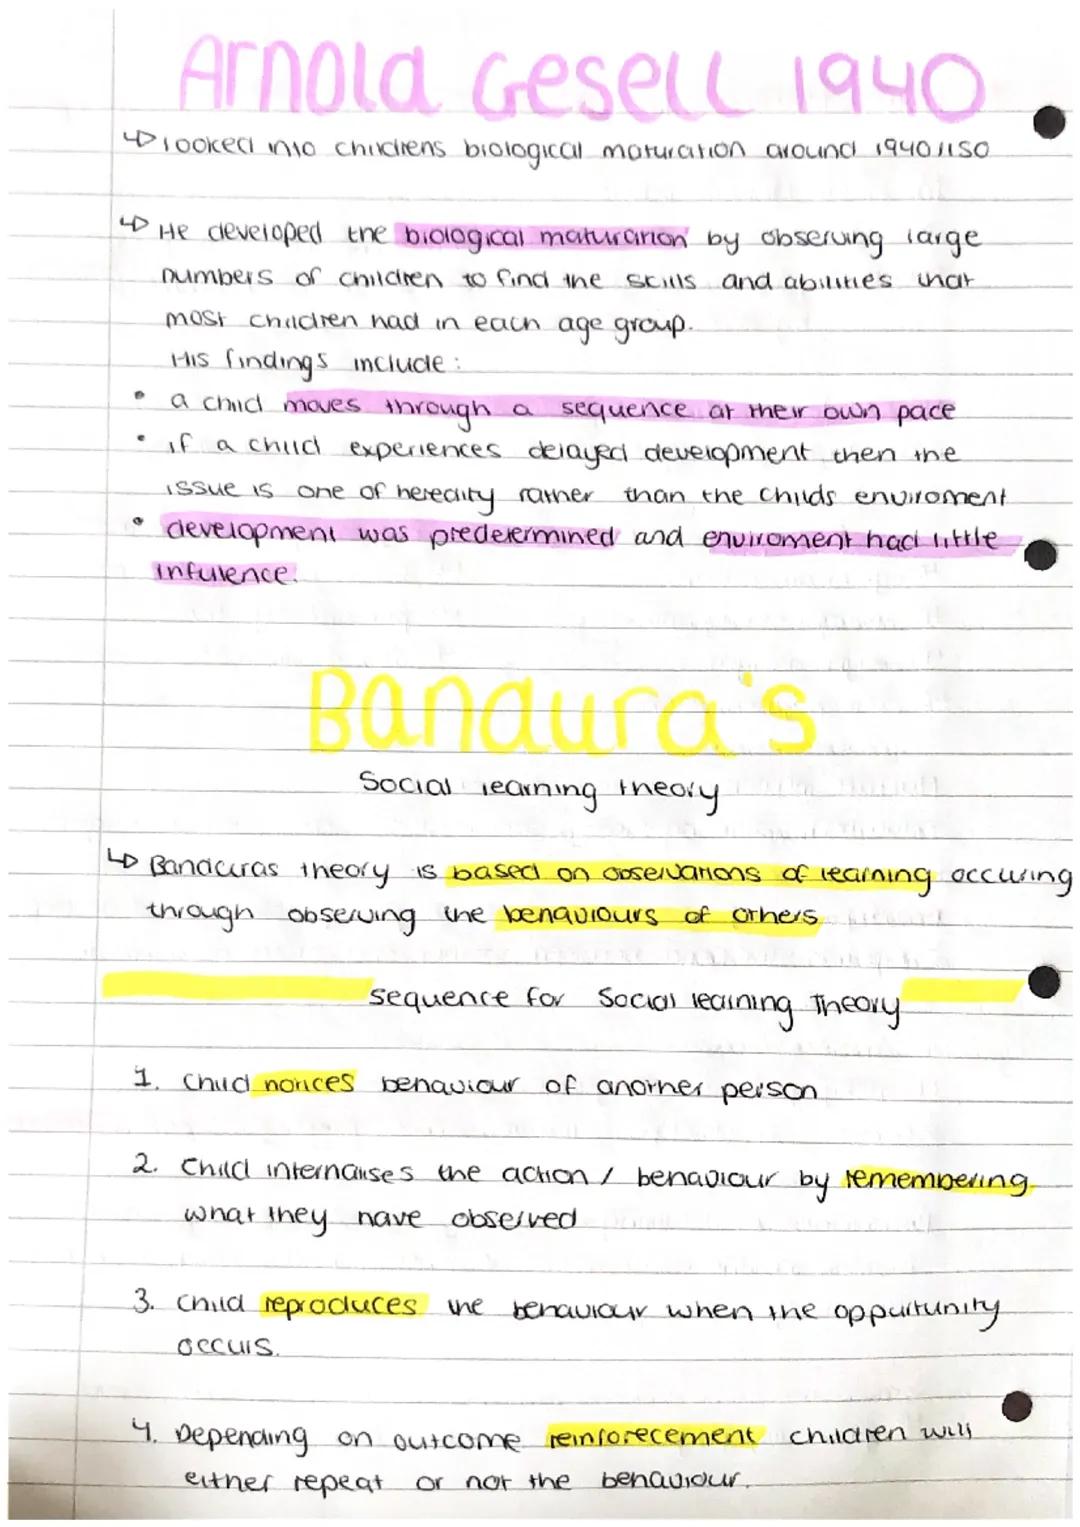 Arnold Gesell 1940
↳ looked into childrens biological maturation around 1940/50
↳ He developed the biological maturation by observing large
numbers of children to find the skills and abilities that
most children had in each age group.
His findings include:
• a child moves through a sequence at their own pace
• if a child experiences delayed development then the
issue is one of heredity rather than the childs enviroment
• development was predetermined and enviroment had little
infulence.
Bandura's
Social learning theory
↳ Banduras theory is based on observations of learning occuring
through observing the behaviours of others
sequence for Social learning Theory
1. Child notices behaviour of another person
2. Child internalises the action / behaviour by remembering
what they have observed
3. Child reproduces the behaviour when the oppurtunity
occurs.
4. Depending on outcome reinforecement children will
either repeat or not the behaviour.